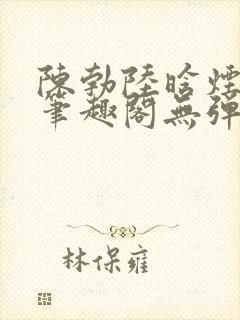 陳勃陸晗煙
筆趣閣無彈
林保雍